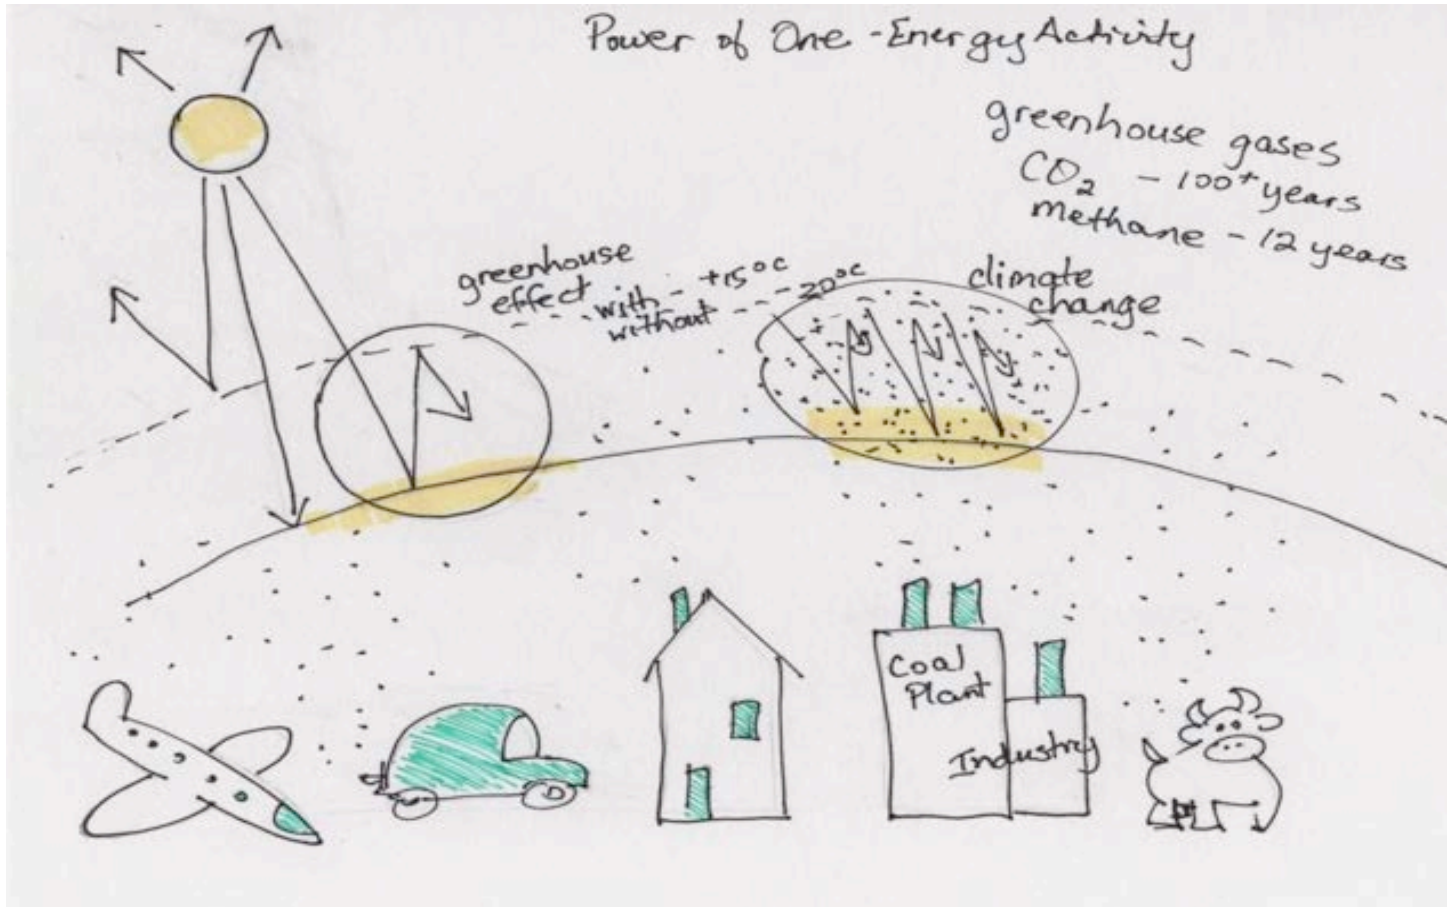 Power of One - Energy Activity
greenhouse gases
CO₂ - 100+ years
methane - 12 years
greenhouse
effect
with - +15°C
without - - 20°C
climate
change
Coal
Plant
Industry